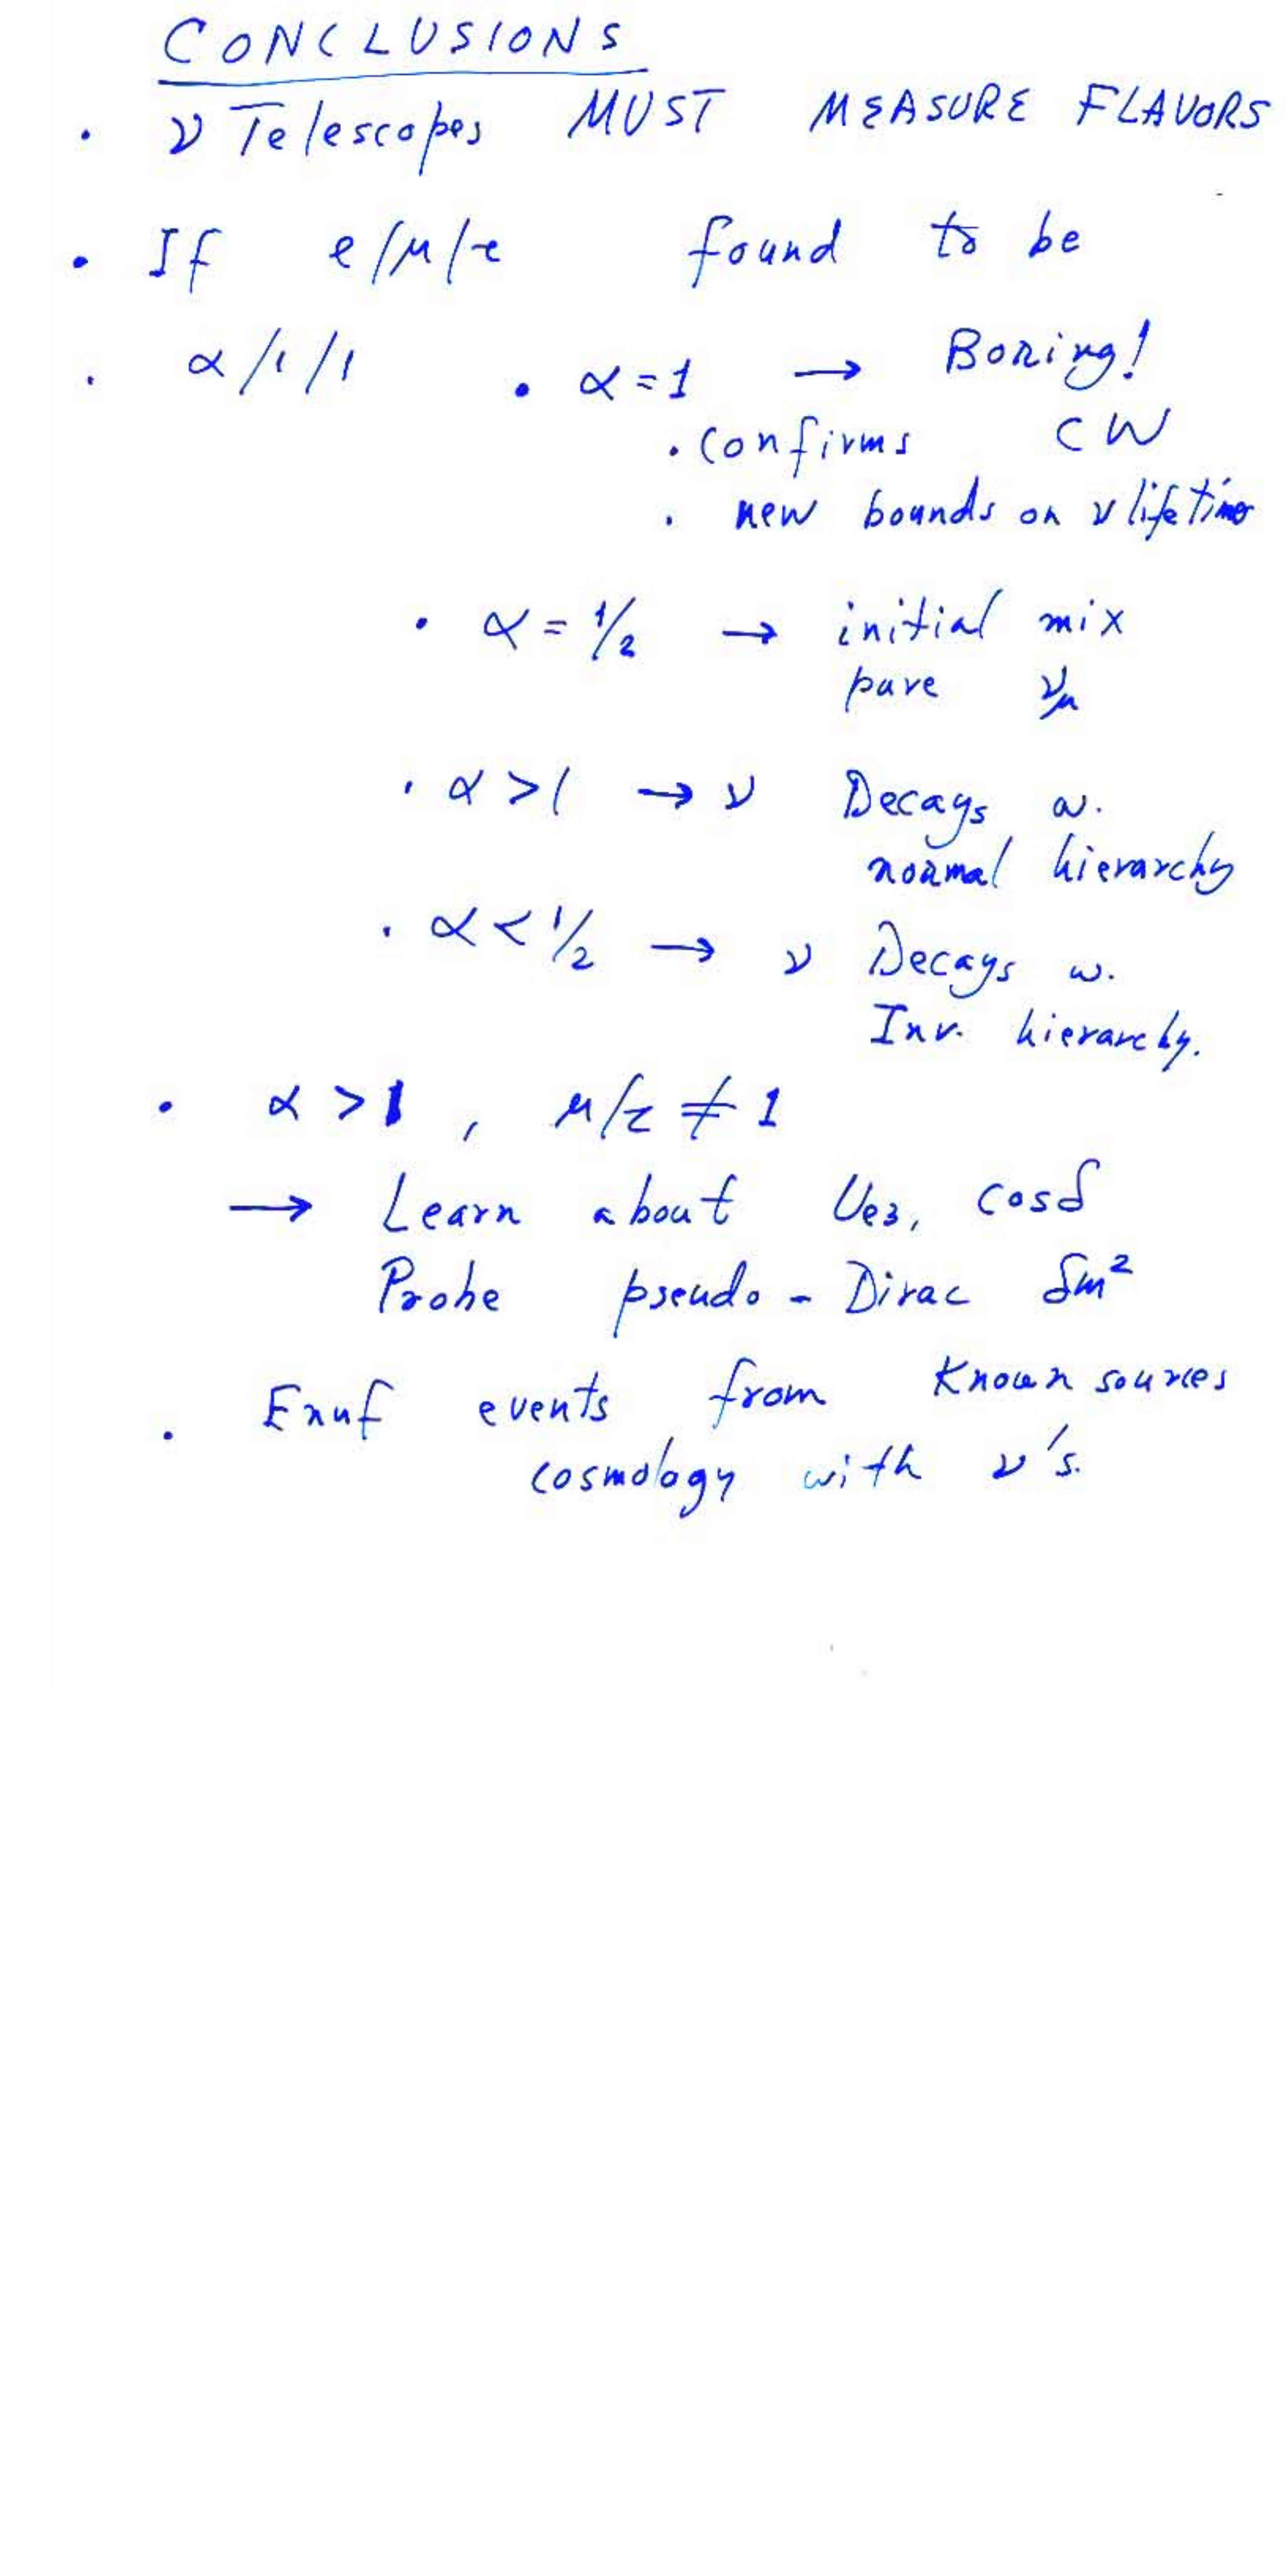 CONCLUSIONS
· ν Telescopes MUST MEASURE FLAVORS
· If e/μ/τ found to be
· α/1/1 · α=1 → Boring!
· confirms CW
· new bounds on ν lifetime
· α = 1/2 → initial mix
pure νμ
· α > 1 → ν Decays w.
normal hierarchy
· α < 1/2 → ν Decays w.
Inv. hierarchy.
· α > 1, μ/τ ≠ 1
→ Learn about Ue3, cosδ
Probe pseudo-Dirac δm²
· Enuf events from Known sources
cosmology with ν's.